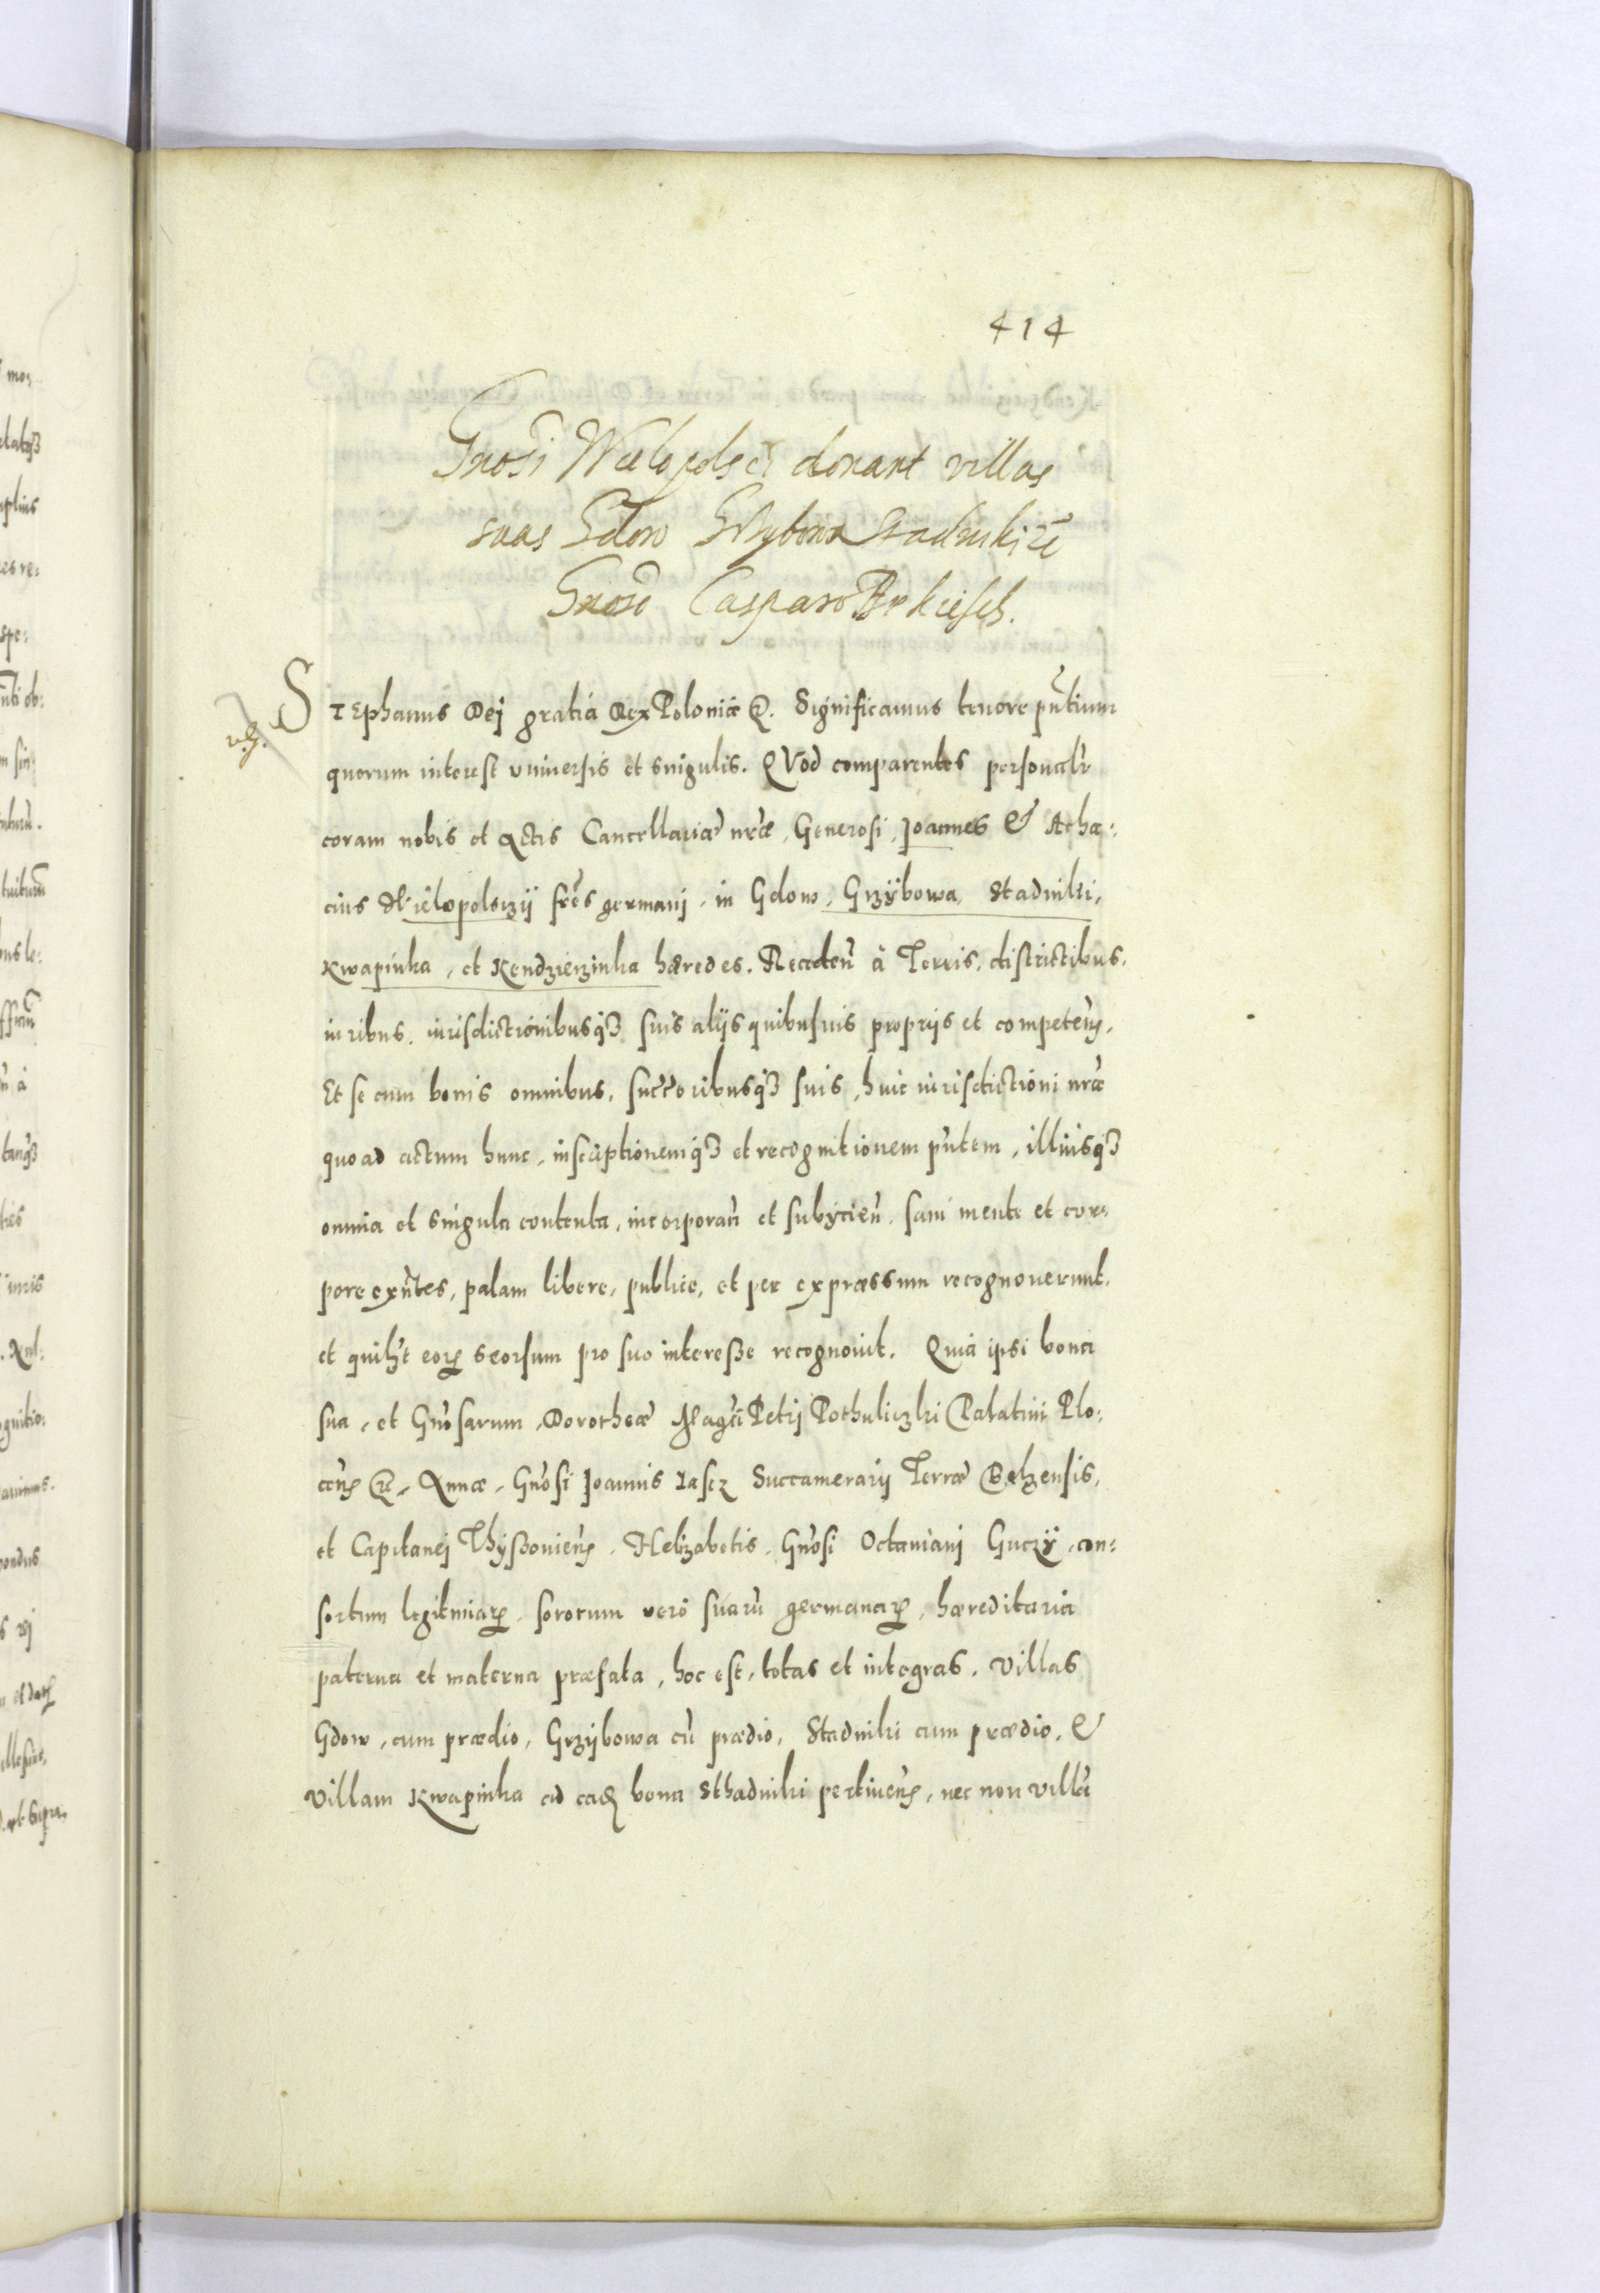 414
Gnosi Wielopolsci donant villas
suas Gdow Grzybowa Stadniki etc
Gnoso Casparo Bekiesch.
STEphanus Dej gratia Rex Poloniæ &. Significamus tenore pñtium
quorum interest vniuersis et singulis. QVod comparentes personalr
coram nobis et Actis Cancellariæ nræ, Generosi, Joannes & Achæ:
cius Wielopolsczÿ frēs germanj, in Gdow, Grzÿbowa, Stadniki,
Kwapinka, et Kendzierzinka hæredes. Receden̄ à Terris, districtibus,
iuribus, iurisdictionibusqȝ suis alijs quibusuis proprijs et competen̄,
Et se cum bonis omnibus, succ̄oribusqȝ suis, huic iurisdictioni nræ
quoad actum hunc, inscriptionemqȝ et recognitionem pn̄tem, illiusqȝ
omnia et singula contenta, incorporan̄ et subÿcien̄, sani mente et cor=
pore exn̄tes, palam libere, publice, et per expræssum recognouerunt,
et quilb̄t eorꝝ seorsum pro suo interesse recognouit. Quia ipsi bona
sua, et Gn̄osarum, Dorotheæ Magci Petrj Pothuliczki Palatini Plo:
cen̄ &c, Annæ, Gn̄osi Joannis Jascz Succamerarij Terræ Belzensis,
et Capitanej Thyßouien̄, Helizabetis, Gn̄osi Octauianj Guczÿ, con=
sortum legitimarꝝ, sororum vero suarū germanarꝝ, hæreditaria
paterna et materna præfata, hoc est, totas et integras, Villas
Gdow, cum prædio, Grzÿbowa cū prædio, Stadniki cum prædio, &
Villam Kwapinka ad eadꝫ bona Sthadniki pertinen̄, nec non villā